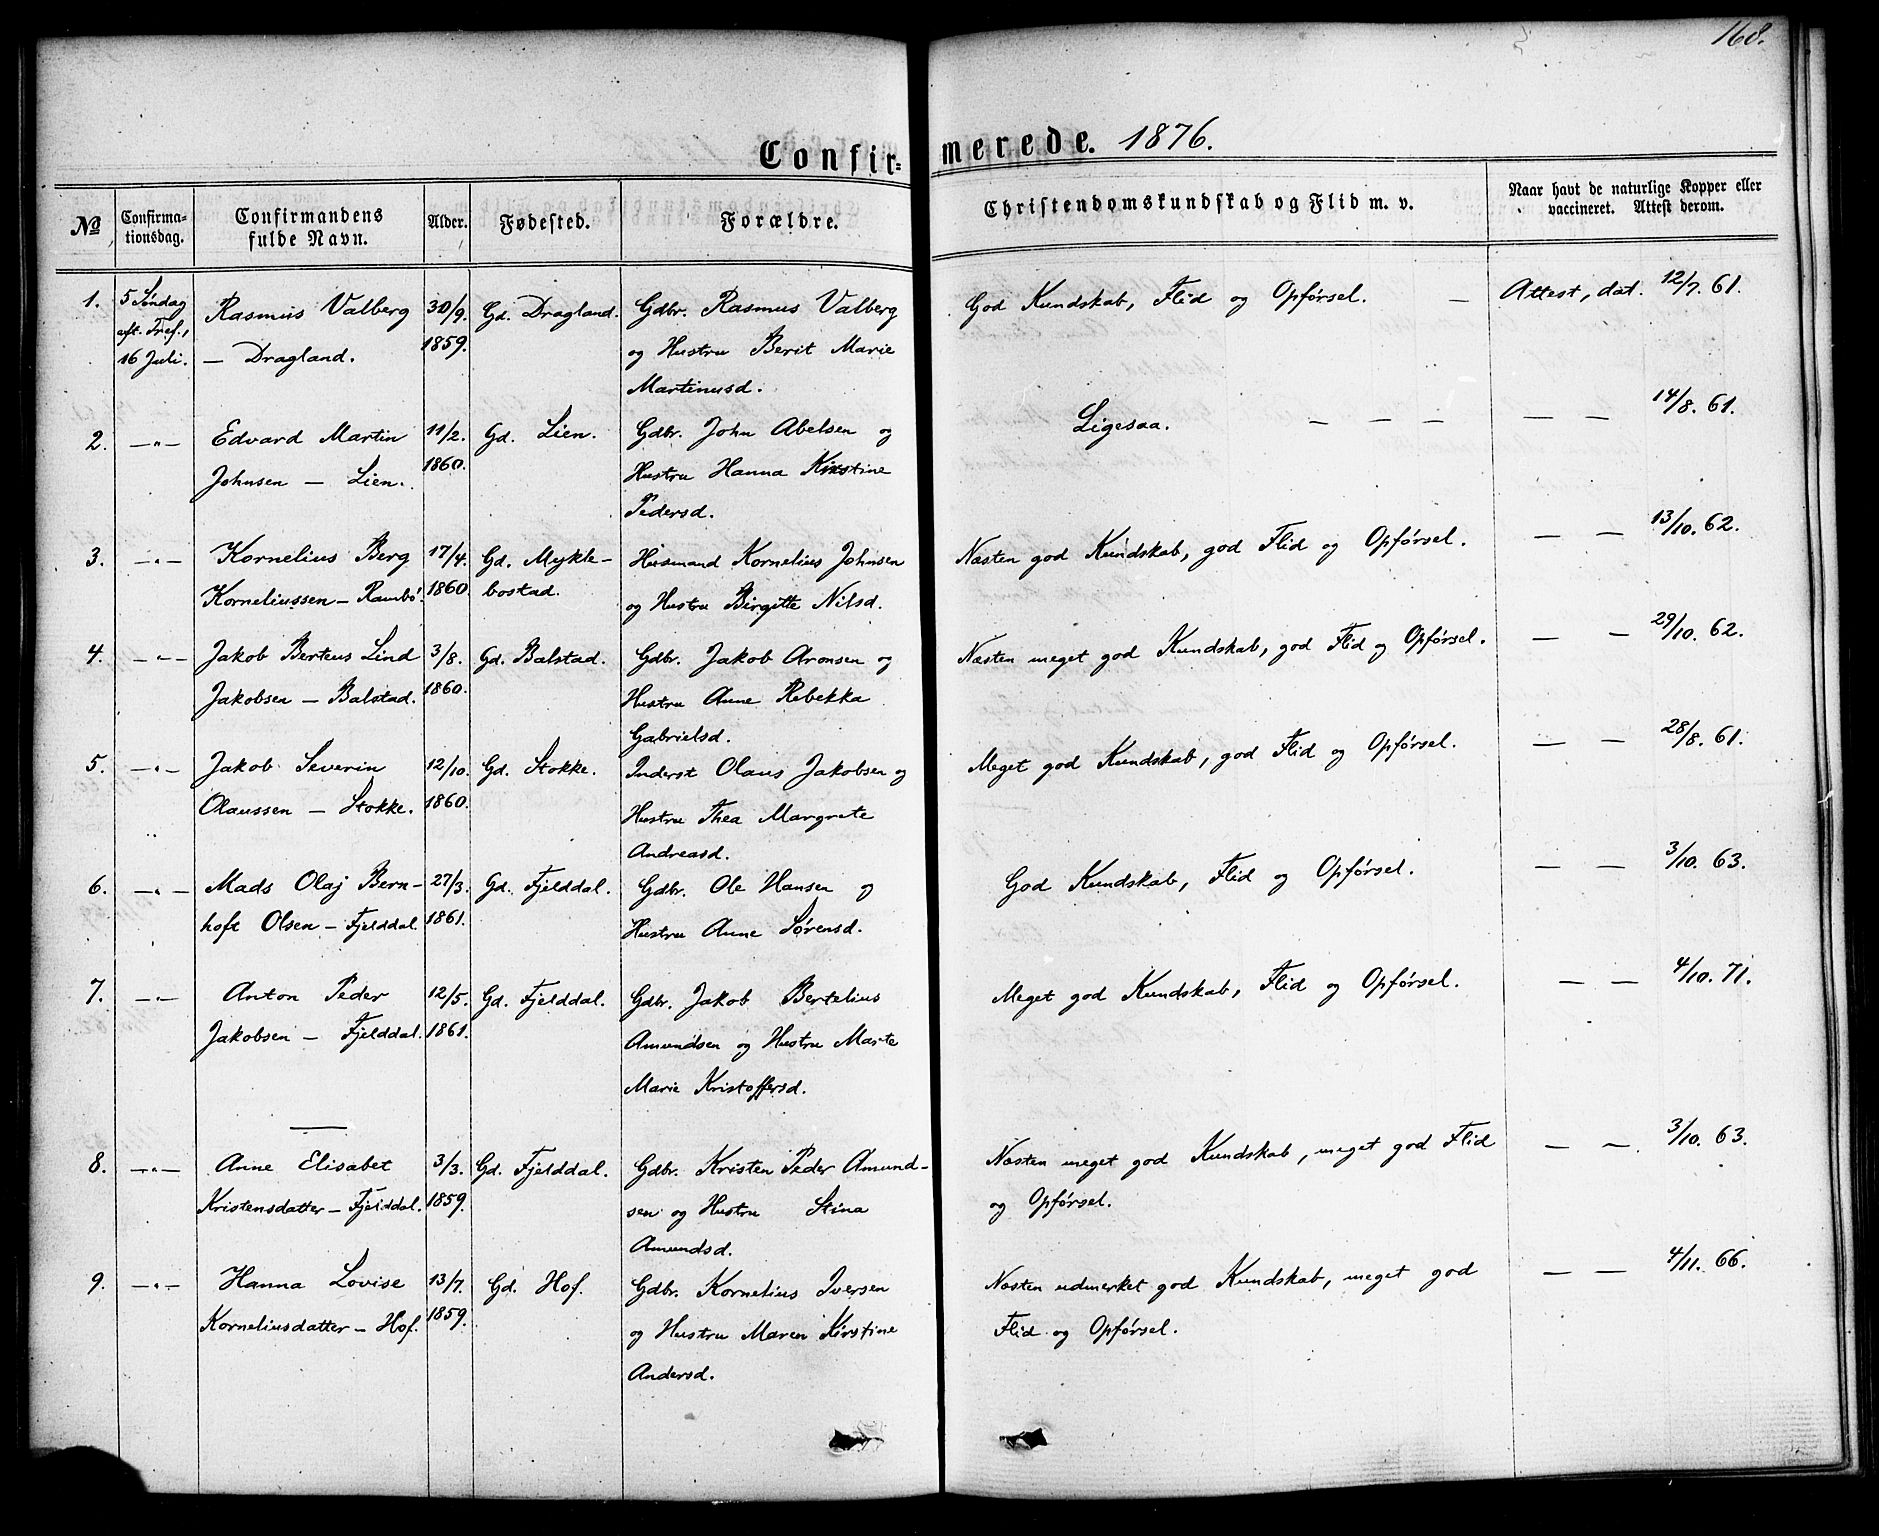 168.
Confir-
merede. 1876.
No
Confirma-
tionsdag.
Confirmandens
fulde Navn.
Alder.
Fødested.
Forældre.
Christendomskundskab og Flid m. v.
Naar havt de naturlige Kopper eller
vaccineret. Attest derom.
1. 5 Søndag Rasmus Valberg 30/9. Gd. Dragland. Gdbr. Rasmus Valberg God Kundskab, Flid og Opførsel. — Attest, dat. 12/7. 61.
eft. Tref., — Dragland. 1859. og Hustru Berit Marie
16 Juli. Martinusd.
2. —"— Edvard Martin 11/2. Gd. Lien. Gdbr. John Abelsen og Ligesaa. — — — — — 14/8. 61.
Johnsen — Lien. 1860. Hustru Hanna Kirstine
Pedersd.
3. —"— Kornelius Berg 17/4. Gd. Mykle- Husmand Kornelius Johnsen Næsten god Kundskab, god Flid og Opførsel. — — 13/10. 62.
Korneliussen — Rambö. 1860 bostad. og Hustru Birgitte Nilsd.
4. —"— Jakob Berteus Lind 3/8. Gd. Balstad. Gdbr. Jakob Aronsen og Næsten meget god Kundskab, god Flid og Opførsel. — — 29/10. 62.
Jakobsen — Balstad. 1860. Hustru Anne Rebekka
Gabrielsd.
5. —"— Jakob Severin 12/10. Gd. Stokke. Inderst Olaus Jakobsen og Meget god Kundskab, god Flid og Opførsel. — — 28/8. 61.
Olaussen — Stokke. 1860. Hustru Thea Margrete
Andreasd.
6. —"— Mads Olaj Bern- 27/3. Gd. Fjelddal. Gdbr. Ole Hansen og God Kundskab, Flid og Opførsel. — — 3/10. 63.
hoft Olsen — Fjelddal. 1861. Hustru Anne Sørensd.
7. —"— Anton Peder 12/5. Gd. Fjelddal. Gdbr. Jakob Bertelius Meget god Kundskab, Flid og Opførsel. — — 4/10. 71.
Jakobsen — Fjelddal. 1861. Amundsen og Hustru Marte
Marie Kristoffersd.
8. —"— Anne Elisabet 3/3. Gd. Fjelddal. Gdbr. Kristen Peder Amund- Næsten meget god Kundskab, meget god Flid — — 3/10. 63.
Kristensdatter — Fjelddal. 1859. sen og Hustru Stina og Opførsel.
Amundsd.
9. —"— Hanna Lovise 13/7. Gd. Hof. Gdbr. Kornelius Iversen Næsten udmerket god Kundskab, meget god — — 4/11. 66.
Korneliusdatter — Hof. 1859. og Hustru Maren Kirstine Flid og Opførsel.
Andersd.